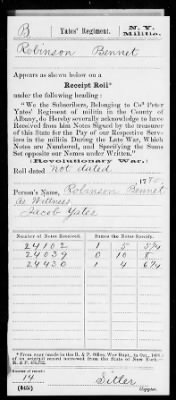 B | Yates' Regiment. | N. Y. Militia.
Robinson Bennet
Appears as shown below on a
Receipt Roll*
under the following heading:
"We the Subscribers, Belonging to Col Peter
Yates' Regiment of militia in the County of
Albany, do Hereby severally acknowledge to have
Received from him Notes Signed by the treasurer
of this State for the Pay of our Respective Serv-
ices in the militia During the Late War, Which
Notes are Numbered, and Specifying the Same
Set opposite our Names under Written."
(Revolutionary War.)
Roll dated not dated, 17
Person's Name, Robinson Bennet
As Witness
Jacob Yates
Number of Notes Received. | Sums the Notes Specify.
24102 | 1 5 5¾
24039 0 10 8
24430 1 4 6¾
Number of record:
14
(545) Sitler
Copyist.